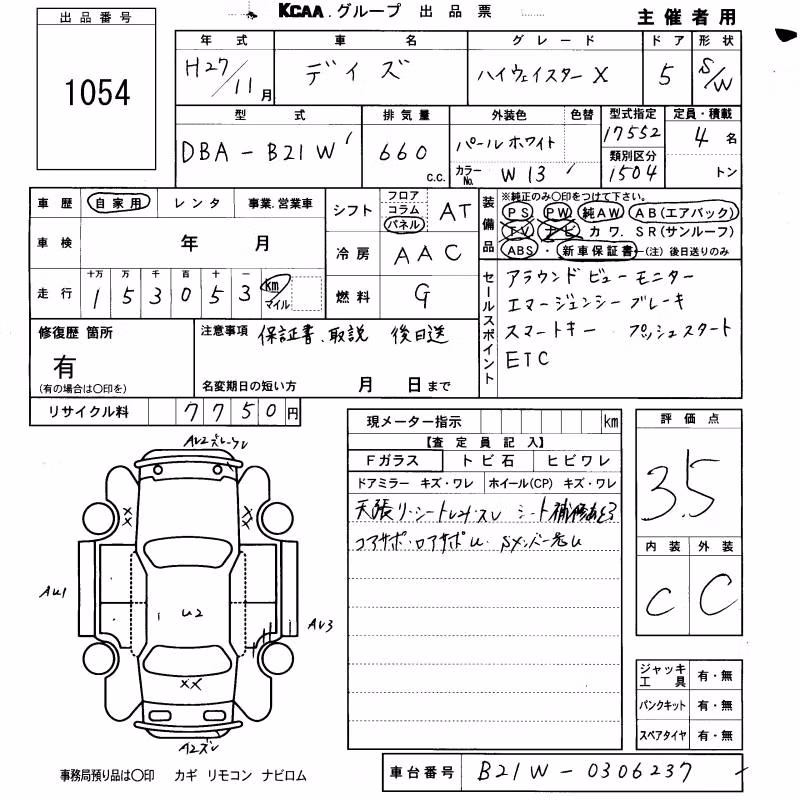 KCAA.グループ 出品票
主催者用
出品番号
1054
年式 車名 グレード ドア 形状
H27/11月 デイズ ハイウェイスター X 5 S/W
型式 排気量 外装色 色替 型式指定 定員・積載
DBA-B21W 660 c.c. パールホワイト 17552 4名
カラーNo. W13 類別区分 1504 トン
車歴 自家用 レンタ 事業.営業車
シフト フロア コラム パネル AT
装備品 ※純正のみ〇印をつけて下さい。
PS PW 純AW AB(エアバック)
TV ナビ カワ. SR(サンルーフ)
ABS・新車保証書―(注)後日送りのみ
車検 年 月
冷房 AAC
走行 十万 万 千 百 十 一
1 5 3 0 5 3 km マイル
燃料 G
セールスポイント
アラウンド ビュー モニター
エマージェンシー ブレーキ
スマートキー プッシュスタート
ETC
修復歴 箇所
有
(有の場合は〇印を)
注意事項 保証書、取説 後日送
名変期日の短い方 月 日まで
リサイクル料 7750円
現メーター指示 km
【査定員記入】
Fガラス トビ石 ヒビワレ
ドアミラー キズ・ワレ ホイール(CP) キズ・ワレ
天張リ・シート シート補修あと
コアサポ・ロアサポ
評価点
3.5
内装 外装
C C
A2
AU1
U2
AU3
XX
XX
XX
A2
ジャッキ工具 有・無
パンクキット 有・無
スペアタイヤ 有・無
事務局預り品は〇印 カギ リモコン ナビロム
車台番号 B21W-0306237